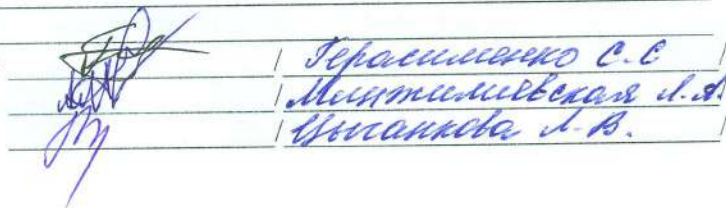 / Герасименко С.С /
/ Минтжилиевская Л.А. /
/ Цыганкова Л.В. /